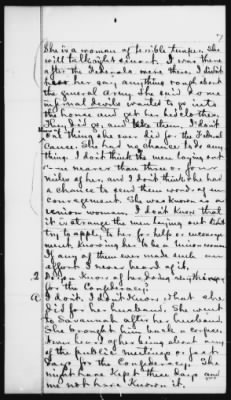 7
She is a woman of terrible temper. She
will talk right smart. I was there
after the Federals were there. I didn't
hear her say anything rough about
the general Army. She said some
infernal devils wanted to go into
the house and get her bed clothes.
I don't
thing she ever did for the Federal
Cause. She had no chance to do any
thing. I don't think the men laying out
came nearer than three or four
miles of her, and I don't think she had
a chance to send them words of en
couragement. She was known as a
union woman. I don't know that
it is strange the men laying out didn't
try to apply to her for help or encourage
ment, knowing her to be a Union woman
If any of them ever made such an
effort I never heard of it.
2 Do you know of her doing anything
for the Confederacy?
A I don't. I don't know what she
did for her husband. She went
to Savannah after her husband.
She brought him back a corpse.
I never heard of her being about any
of the public meetings or fast
days for the Confederacy. She
might have kept these days and
me not have known it.